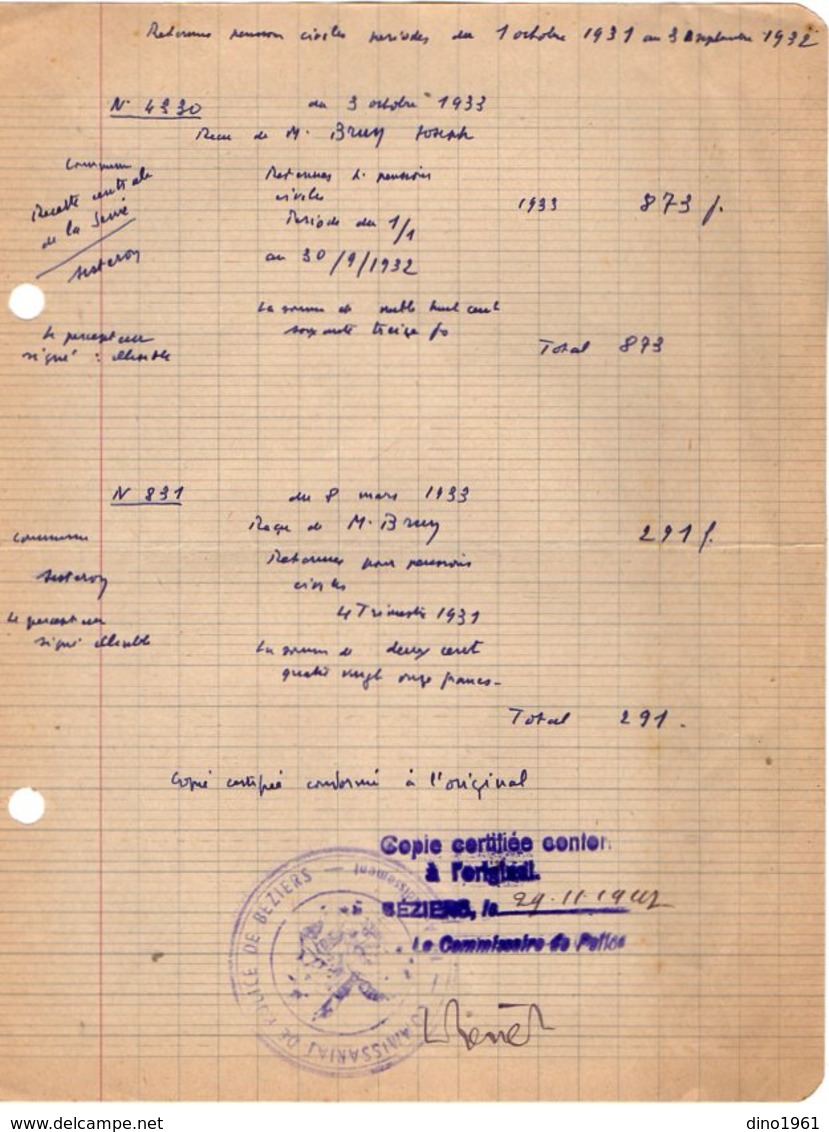 Retenues pension civiles periodes du 1 octobre 1931 au 30 septembre 1932
N° 4330 du 3 octobre 1933
Recu de M. Bruy Joseph
Commune
Recette centrale
de la Seine
Sisteron
Retenues p. pensions
civiles 1933 873 f.
Periode du 1/1
au 30/9/1932
La somme de huit cent
soixante treize fs
Le percepteur
signé : illisible
Total 873
N 831 du 8 mars 1933
Reçu de M. Bruy 291 f.
Commune
Sisteron
Retenues pour pensions
civiles
Le percepteur
signé illisible
4 Trimestre 1931
La somme de deux cent
quatre vingt onze francs-
Total 291.
Copie certifiée conforme à l'original
Copie certifiée confor
à l'original.
BÉZIERS, le 29.11.1942
Le Commissaire de Police
COMMISSARIAT DE POLICE DE BEZIERS
dino1961